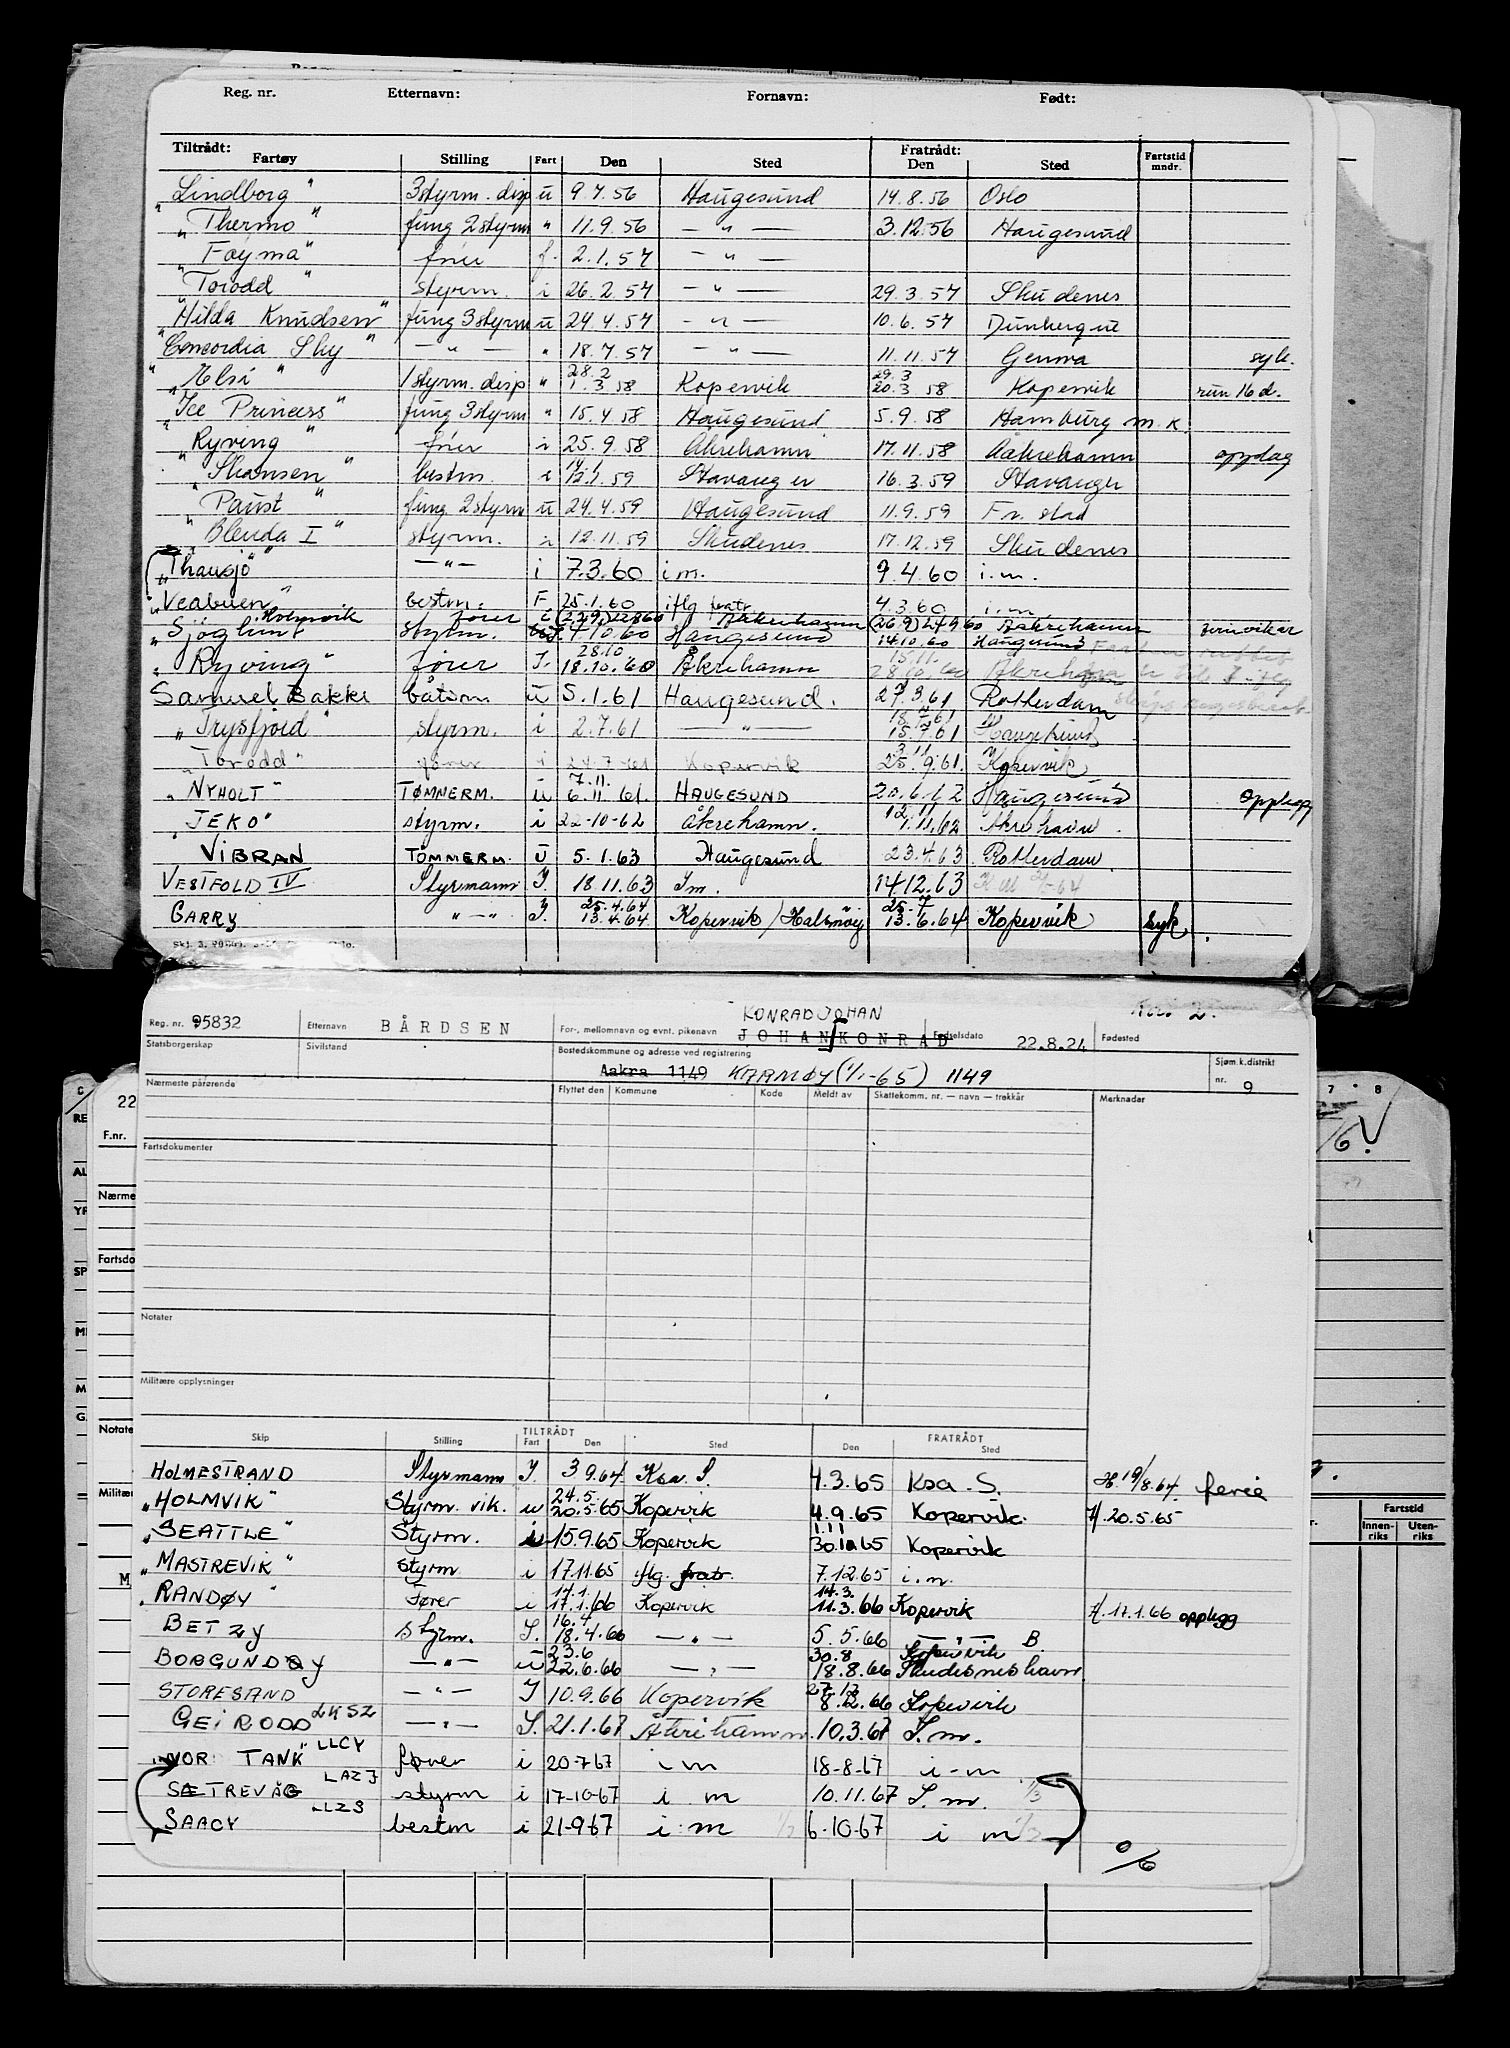 Reg. nr. Etternavn: Fornavn: Født:
Tiltrådt: Fratrådt:
Fartøy Stilling Fart Den Sted Den Sted Fartstid mndr.
"Lindborg" 3styrm. disp u 9.7.56 Haugesund 14.8.56 Oslo
"Thermo" fung 2styrm " 11.9.56 — " — 3.12.56 Haugesund
"Føyma" fører f. 2.1.57 — " —
"Torodd" styrm. i 26.2.57 — " — 29.3.57 Skudenes
"Hilda Knudsen" fung 3styrm u 24.4.57 — " — 10.6.57 Dunkerque
"Concordia Sky" — " — " 18.7.57 — " — 11.11.57 Genua syk.
"Elsi" 1styrm. disp " 28.2 1.3.58 Kopervik 29.3 20.3.58 Kopervik run 16 d.
"Ice Princess" fung 3styrm " 15.4.58 Haugesund 5.9.58 Hamburg m.k.
"Ryving" fører i 25.9.58 Åkrehamn 17.11.58 Åkrehamn opplag
"Skansen" bestm. i 12.1.59 Stavanger 16.3.59 Stavanger
"Paust" fung 2styrm u 24.4.59 Haugesund 11.9.59 Fr. stad
"Blenda I" styrm. " 12.11.59 Skudenes 17.12.59 Skudenes
"Thausjø" — " — i 7.3.60 i.m. 9.4.60 i.m.
"Veabuen" bestm. F 25.1.60 iflg fratr. 4.3.60 i.m
Holmvik fører (22.9.) 22.8.60 Åkrehamn (26.9) 24.9.60 Åkrehamn ferievikar
"Sjøglimt styrm. 7.10.60 Haugesund 14.10.60 Haugesund
"Ryving" fører I. 28.10 18.10.60 Åkrehamn 15.11.
Samuel Bakke båtsm. u 5.1.61 Haugesund. 27.3.61 Rotterdam
"Trysfjord" styrm. i 2.7.61 — " — 18.7.61 15.7.61 Haugesund
"Torodd" fører i 24.7.61 Kopervik 3.11 25.9.61. Kopervik
"NYHOLT" TØMMERM. u 7.11. 6.11.61. HAUGESUND 20.6.62 Haugesund opphøgg
"JEKO" styrm. i 22-10-62 Åkrehamn. 12.11 1.11.62 Åkrehavn
VIBRAN TØMMERM. U 5.1.63 Haugesund 23.4.63 Rotterdam
VESTFOLD IV Styrmann I. 18.11.63 I m. 14.12.63
GARRY " — " I. 25.4.64 13.4.64 Kopervik/Halsnøy 25.7 13.6.64 Kopervik syk.
KONRAD JOHAN Kort 2.
Reg. nr. 95832 Etternavn BÅRDSEN For-, mellomnavn og evnt. pikenavn JOHAN KONRAD Fødselsdato 22.8.24 Fødested
Statsborgerskap Sivilstand Bostedskommune og adresse ved registrering Sjøm.k.distrikt
Aakra 1149 KARMØY (1/1-65) 1149 nr. 9
Nærmeste pårørende Flyttet den Kommune Kode Meldt av Skattekomm. nr. — navn — trekkår Merknader
Fartsdokumenter
Notater
Militære opplysninger
TILTRÅDT FRATRÅDT
Skip Stilling Fart Den Sted Den Sted
HOLMESTRAND Styrmann I. 3.9.64. Ksa. S. 4.3.65 Ksa. S. H. 19/8.64. ferie
"HOLMVIK" Styrm. vik. u 24.5. 20.5.65 Kopervik 4.9.65 Kopervik. H. 20.5.65
"SEATTLE" Styrm. u 15.9.65 Kopervik 1.11 30.10.65 Kopervik
"MASTREVIK" styrm i 17.11.65 iflg. fratr. 7.12.65 i.m.
"RANDØY Fører i 14.1. 17.1.66 Kopervik 14.3. 11.3.66 Kopervik H. 17.1.66 opplegg
BETZY styrm. I. 16.4 18.4.66 — " — 5.5.66 — " — B.
BORGUNDØY — " — u 23.6 22.6.66 — " — 30.8 18.8.66 Kopervik Skudesneshavn
STORESAND — " — I 10.9.66 Kopervik 27.12 8.12.66 Kopervik
GEIRODD LKSZ — " — I. 21.1.67 Åkrehamn. 10.3.67 I.m.
"NOR TANK" LLCY fører i 20-7-67 i m 18-8-67 i-m
SÆTREVÅG LAZJ styrm i 17-10-67 i m 10.11.67 I.m. 1/3
SAROY LLZS bestm i 21-9-67 i m 6-10-67 i m
0/6
22
F.nr.
Nærme
Fartsdo
Notate
Militær
M
RE
AL
SP
M
7 8
/6. V
Fartstid
Innen-riks Uten-riks